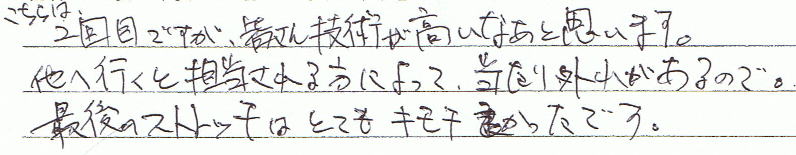 こちらは、
2回目ですが、皆さん技術が高いなあと思います。
他へ行くと担当される方によって、当たり外れがあるので。
最後のストレッチはとてもキモチよかったです。